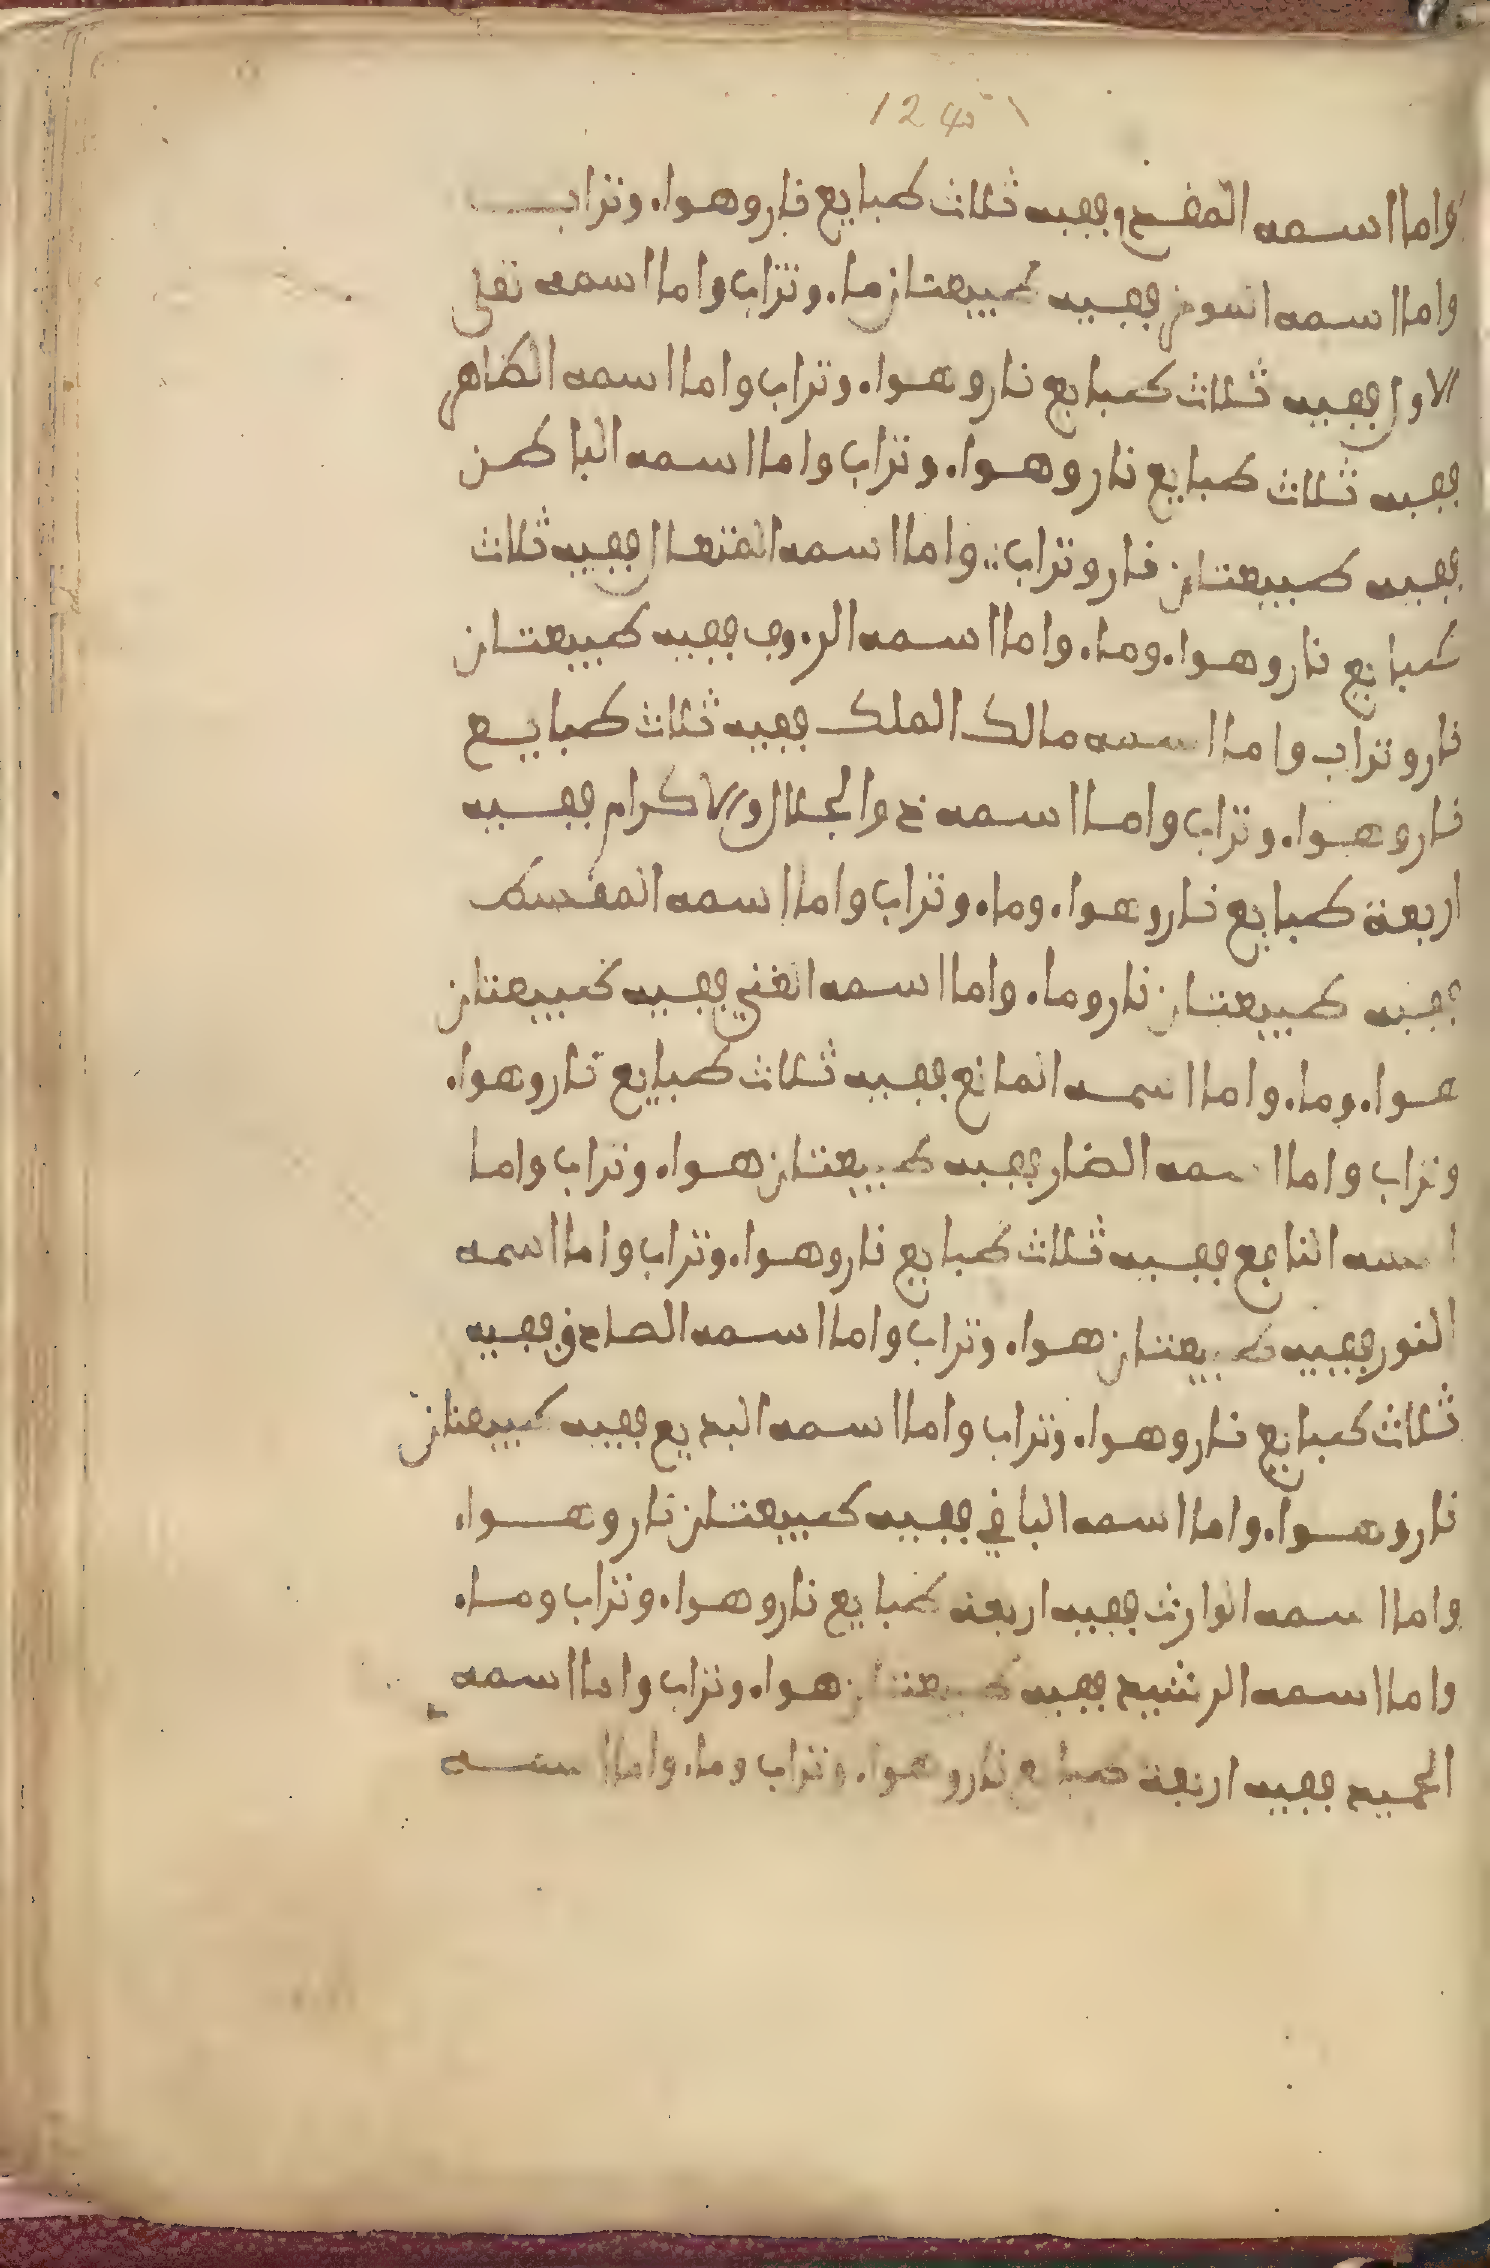 واما اسمه المقدم ففيه ثلاث طبايع نار وهواء وتراب
واما اسمه ففيه طبيعتان ماء وتراب واما اسمه تعلى
الاول ففيه ثلاث طبايع نار وهواء وتراب واما اسمه الظاهر
ففيه ثلاث طبايع نار وهواء وتراب واما اسمه الباطن
ففيه طبيعتان نار وتراب واما اسمه المتعال ففيه ثلاث
طبايع نار وهواء وماء واما اسمه الرءوف ففيه طبيعتان
نار وتراب واما اسمه مالك الملك ففيه ثلاث طبايع
نار وهواء وتراب واما اسمه ذو الجلال والاكرام ففيه
اربعة طبايع نار وهواء وماء وتراب واما اسمه المقسط
ففيه طبيعتان نار وماء واما اسمه الغني ففيه طبيعتان
هواء وماء واما اسمه المانع ففيه ثلاث طبايع نار وهواء
وتراب واما اسمه الضار ففيه طبيعتان هواء وتراب واما
اسمه النافع ففيه ثلاث طبايع نار وهواء وتراب واما اسمه
النور ففيه طبيعتان هواء وتراب واما اسمه الصادق ففيه
ثلاث طبايع نار وهواء وتراب واما اسمه البديع ففيه طبيعتان
نار وهواء واما اسمه الباقي ففيه طبيعتان نار وهواء
واما اسمه الوارث ففيه اربعة طبايع نار وهواء وتراب وماء
واما اسمه الرشيد ففيه طبيعتان هواء وتراب واما اسمه
الحميد ففيه اربعة طبايع نار وهواء وتراب وماء واما اسمه